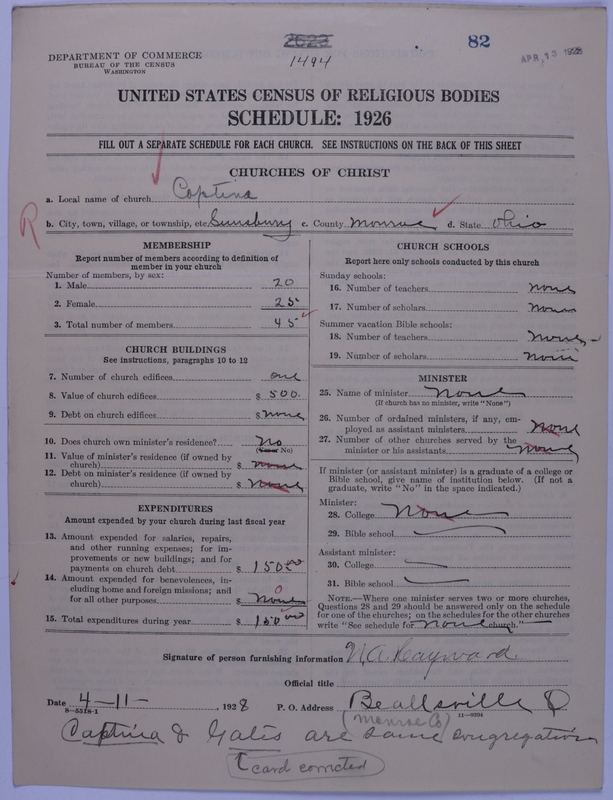 2622
1494
82
APR 13 1928
DEPARTMENT OF COMMERCE
BUREAU OF THE CENSUS
WASHINGTON
UNITED STATES CENSUS OF RELIGIOUS BODIES
SCHEDULE: 1926
FILL OUT A SEPARATE SCHEDULE FOR EACH CHURCH. SEE INSTRUCTIONS ON THE BACK OF THIS SHEET
CHURCHES OF CHRIST
a. Local name of church Captina
R
b. City, town, village, or township, etc. Sunsbury c. County Monroe d. State Ohio
MEMBERSHIP
Report number of members according to definition of
member in your church
Number of members, by sex:
1. Male 20
2. Female 25
3. Total number of members 45
CHURCH BUILDINGS
See instructions, paragraphs 10 to 12
7. Number of church edifices one
8. Value of church edifices $ 500.
9. Debt on church edifices $ none
10. Does church own minister's residence? No
(Yes or No)
11. Value of minister's residence (if owned by
church) $ none
12. Debt on minister's residence (if owned by
church) $ none
EXPENDITURES
Amount expended by your church during last fiscal year
13. Amount expended for salaries, repairs,
and other running expenses; for im-
provements or new buildings; and for
payments on church debt $ 150 00
14. Amount expended for benevolences, in-
cluding home and foreign missions; and
for all other purposes $ none 0
15. Total expenditures during year $ 150 00
CHURCH SCHOOLS
Report here only schools conducted by this church
Sunday schools:
16. Number of teachers none
17. Number of scholars none
Summer vacation Bible schools:
18. Number of teachers none
19. Number of scholars none
MINISTER
25. Name of minister None
(If church has no minister, write "None")
26. Number of ordained ministers, if any, em-
ployed as assistant ministers None
27. Number of other churches served by the
minister or his assistants None
If minister (or assistant minister) is a graduate of a college or
Bible school, give name of institution below. (If not a
graduate, write "No" in the space indicated.)
Minister:
28. College None
29. Bible school
Assistant minister:
30. College
31. Bible school
NOTE.—Where one minister serves two or more churches,
Questions 28 and 29 should be answered only on the schedule
for one of the churches; on the schedules for the other churches
write "See schedule for none church."
Signature of person furnishing information N. A. Hayward
Official title
Date 4-11-, 1928 P. O. Address Beallsville O
8-5518-1 (Monroe Co) 11-9394
Captina & Gates are same congregation
card corrected